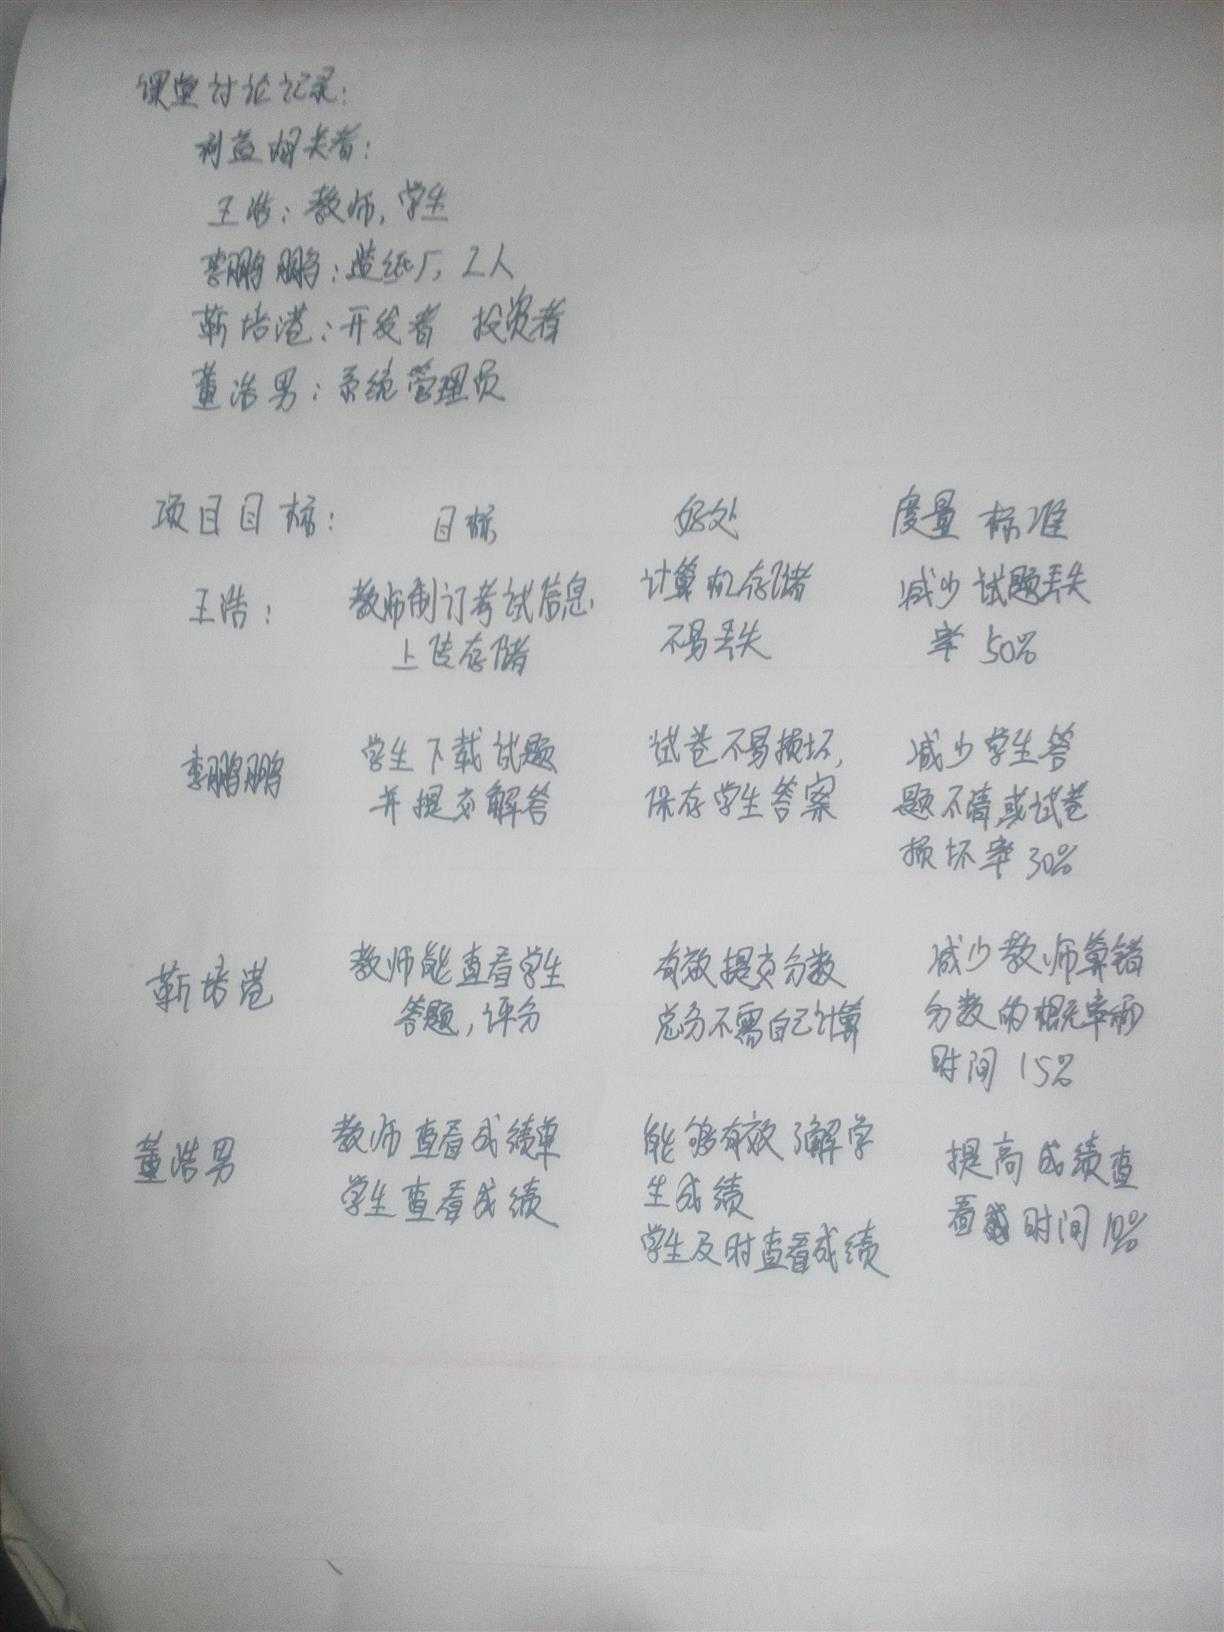 课堂讨论记录:
利益相关者:
王浩: 教师, 学生
李鹏鹏: 造纸厂, 工人
靳培港: 开发者 投资者
董浩男: 系统管理员
项目目标: 目标 好处 度量标准
王浩: 教师制订考试信息, 计算机存储 减少试题丢失
上传存储 不易丢失 率 50%
李鹏鹏 学生下载试题 试卷不易损坏, 减少学生答
并提交解答 保存学生答案 题不清,或试卷
损坏率 30%
靳培港 教师能查看学生 有效提交分数 减少教师算错
答题, 评分 总分不需自己计算 分数的概率和
时间 15%
董浩男 教师查看成绩单 能够有效了解学 提高成绩查
学生查看成绩 生成绩 看时间 10%
学生及时查看成绩